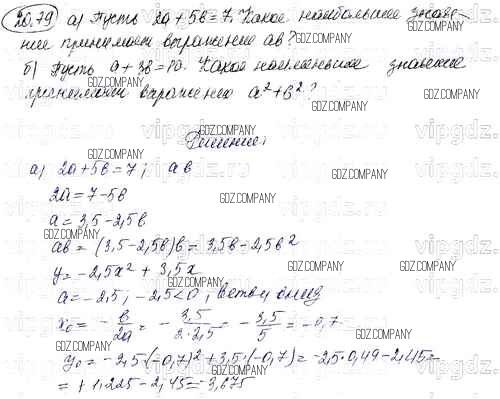 20.79 а) Пусть 2a + 5b = 7. Какое наибольшее значе-
ние принимает выражение ab?
б) Пусть a + 3b = 10. Какое наименьшее значение
принимает выражение a² + b²?
Решение:
а) 2a + 5b = 7; ab
2a = 7 - 5b
a = 3,5 - 2,5b
ab = (3,5 - 2,5b)b = 3,5b - 2,5b²
y = -2,5x² + 3,5x
a = -2,5; -2,5 < 0, ветви вниз
x₀ = - b/2a = - 3,5/2·2,5 = - 3,5/5 = -0,7
y₀ = -2,5·(-0,7)² + 3,5·(-0,7) = -2,5·0,49 - 2,45 =
= + 1,225 - 2,45 = -3,675
GDZ.COMPANY
vipgdz.ru